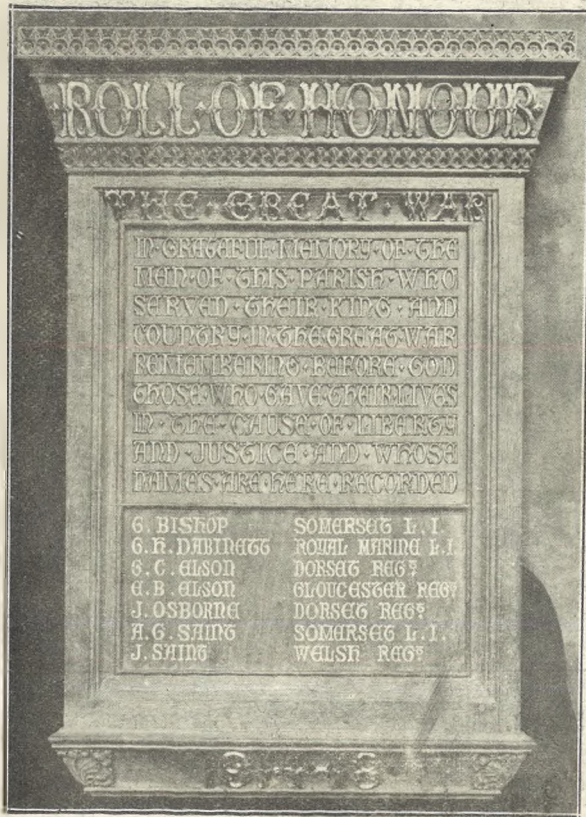 ROLL·OF·HONOUR
THE·GREAT·WAR
IN·GRATEFUL·MEMORY·OF·THE
MEN·OF·THIS·PARISH·WHO
SERVED·THEIR·KING·AND
COUNTRY·IN·THE·GREAT·WAR
REMEMBERING·BEFORE·GOD
THOSE·WHO·GAVE·THEIR·LIVES
IN·THE·CAUSE·OF·LIBERTY
AND·JUSTICE·AND·WHOSE
NAMES·ARE·HERE·RECORDED
G. BISHOP SOMERSET L.I.
G.H. DABINETT ROYAL MARINE L.I.
G.C. ELSON DORSET REGT
E.B. ELSON GLOUCESTER REGT
J. OSBORNE DORSET REGT
A.G. SAINT SOMERSET L.I.
J. SAINT WELSH REGT